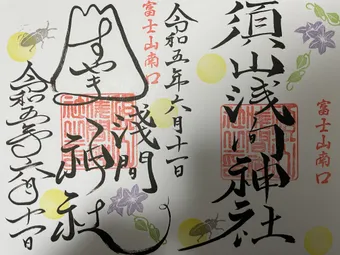 富士山南口
須山浅间神社
令和五年六月十一日
富士山南口
すやま
浅間
神社
令和五年六月十一日